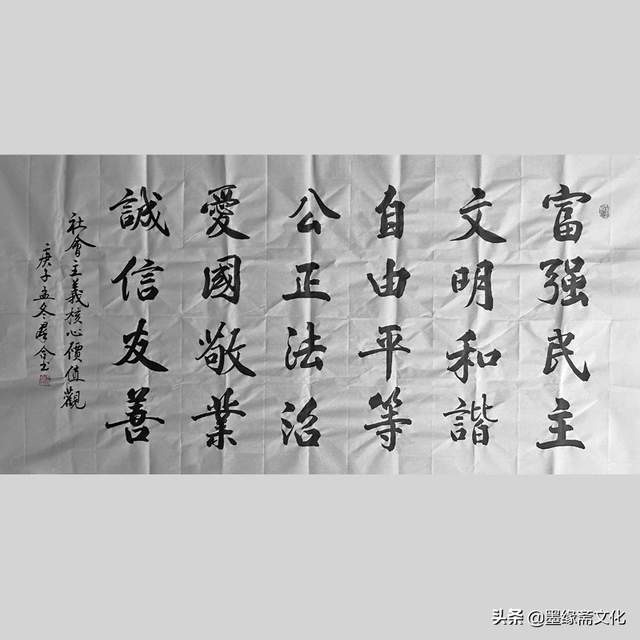 富強民主
文明和諧
自由平等
公正法治
愛國敬業
誠信友善
社會主義核心價值觀
庚子孟冬
头条 @墨缘斋文化